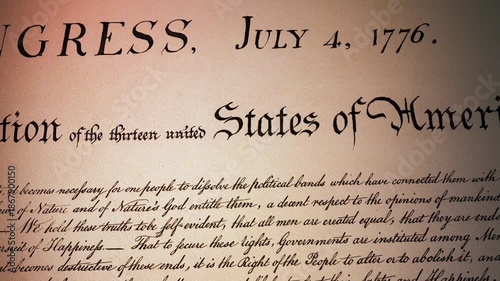 NGRESS, JULY 4, 1776.
tion of the thirteen united States of Ameri
it becomes necessary for one people to dissolve the political bands which have connected them with
of Nature and of Nature's God entitle them, a decent respect to the opinions of mankind
We hold these truths to be self-evident, that all men are created equal, that they are end
suit of Happiness.— That to secure these rights, Governments are instituted among Men
becomes destructive of these ends, it is the Right of the People to alter or to abolish it, and
Safety and Happiness.
Adobe Stock | #1867900150